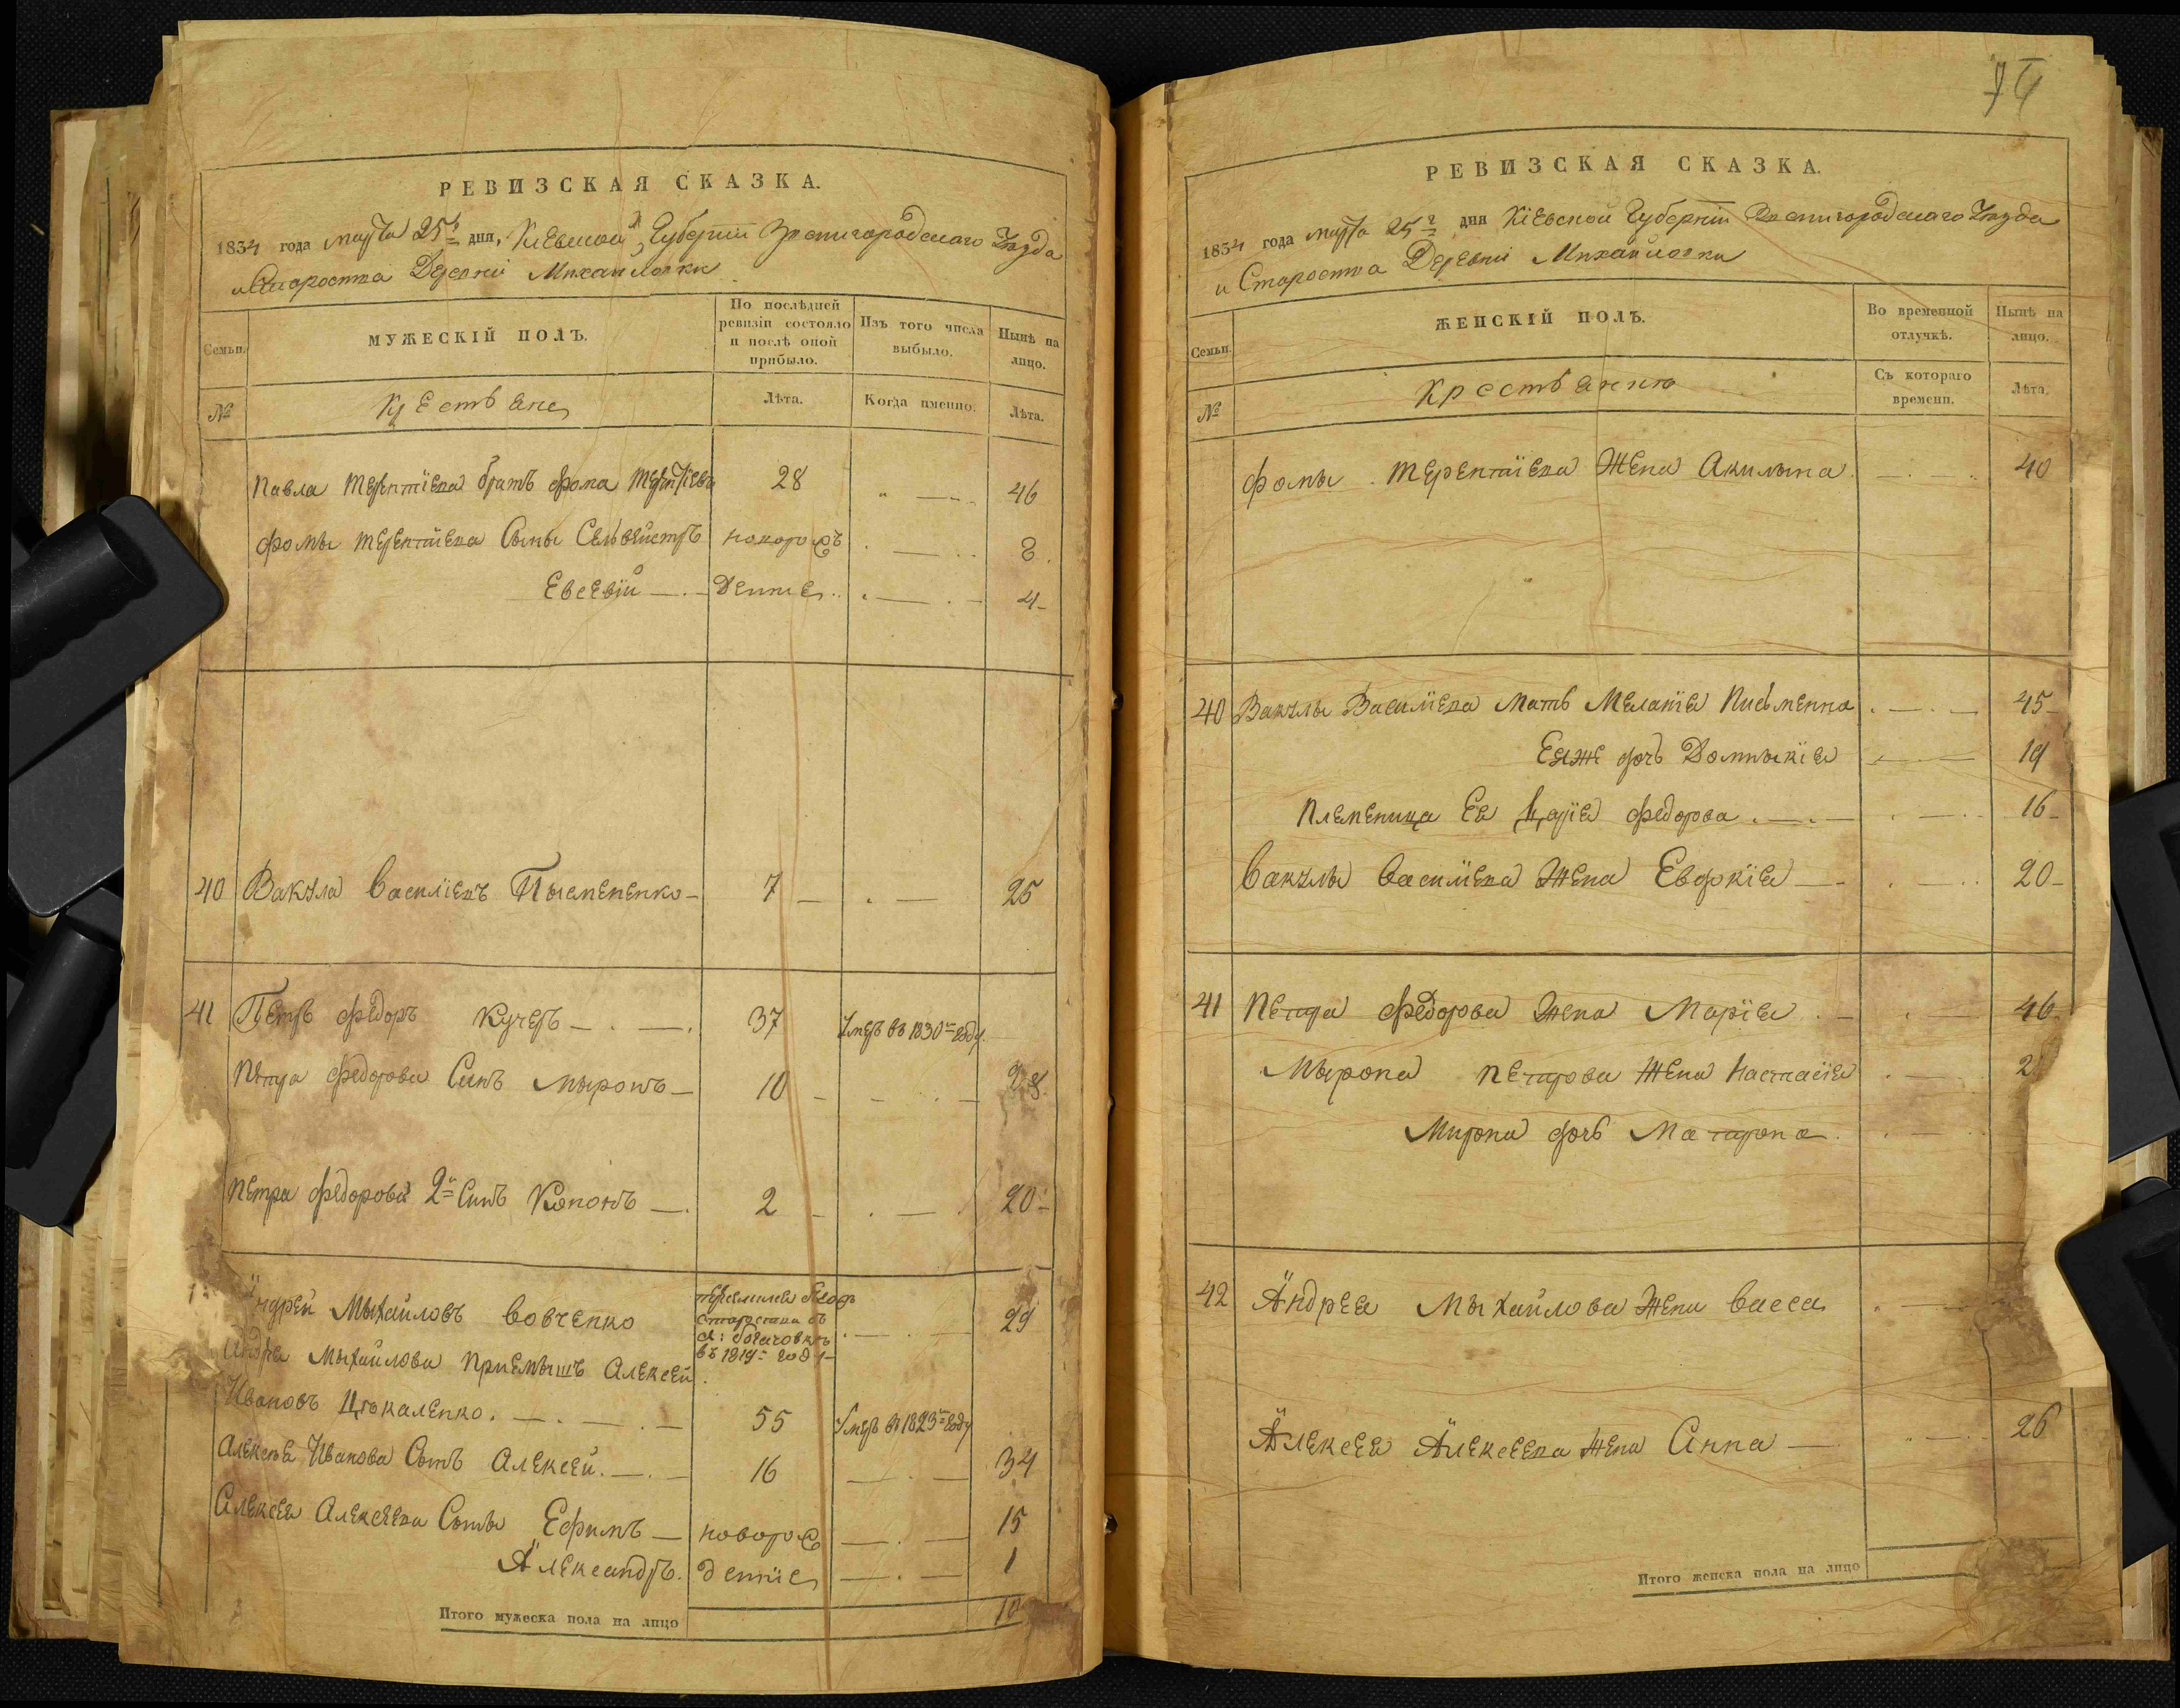 РЕВИЗСКАЯ СКАЗКА.
1834 года марта 25 дня, Киевской Губернии Звенигородскаго Уезда
и Староства Деревни Михайловки
Семьи. МУЖЕСКІЙ ПОЛЪ. По послѣдней ревизіи состояло и послѣ оной прибыло. Изъ того числа выбыло. Нынѣ на лицо.
№ Крестьяне Лѣта. Когда именно. Лѣта.
Павла Терентіева братъ Фома Терентіевъ 28 46
Фомы Терентіева Сыны Селвейстръ новорож 8
Евсевій денние 4
40 Вакула Василіевъ Пысмененко 7 25
41 Петръ Федоръ Кучеръ 37 Умеръ въ 1830 году.
Петра Федорова Синъ Мыронъ 10 28
Петра Федорова 2й Синъ Кононъ 2 20
Андрей Мыхайловъ Вовченко 29
въ 1819 году
Андрея Мыхайлова Приемышъ Алексей
Ивановъ Цюкаленко. 55 Умеръ въ 1823 году
Алексея Иванова Сынъ Алексей. 16 34
Алексея Алексеева Сыны Ефимъ новорож 15
Александръ. денніе 1
Итого мужеска пола на лицо 10
РЕВИЗСКАЯ СКАЗКА.
1834 года марта 25 дня Кіевской Губерніи Звенигородскаго Уезда
и Староства Деревни Михайловки
Семьи. ЖЕНСКІЙ ПОЛЪ. Во временной отлучкѣ. Нынѣ на лицо.
№ Крестьянки Съ котораго времени. Лѣта.
Фомы Терентіева Жена Акилина 40
40 Вакулы Василіева Мать Меланія Письменна 45
Еяже дочь Домникія 19
Племеница Ея Дарія Федорова 16
Вакулы Василіева Жена Евдокія 20
41 Петра Федорова Жена Марія 46
Мырона Петрова Жена Настасія 2
Мирона дочь Матрона.
42 Андрея Мыхайлова Жена Васса
Алексея Алексеева Жена Анна 26
Итого женска пола на лицо